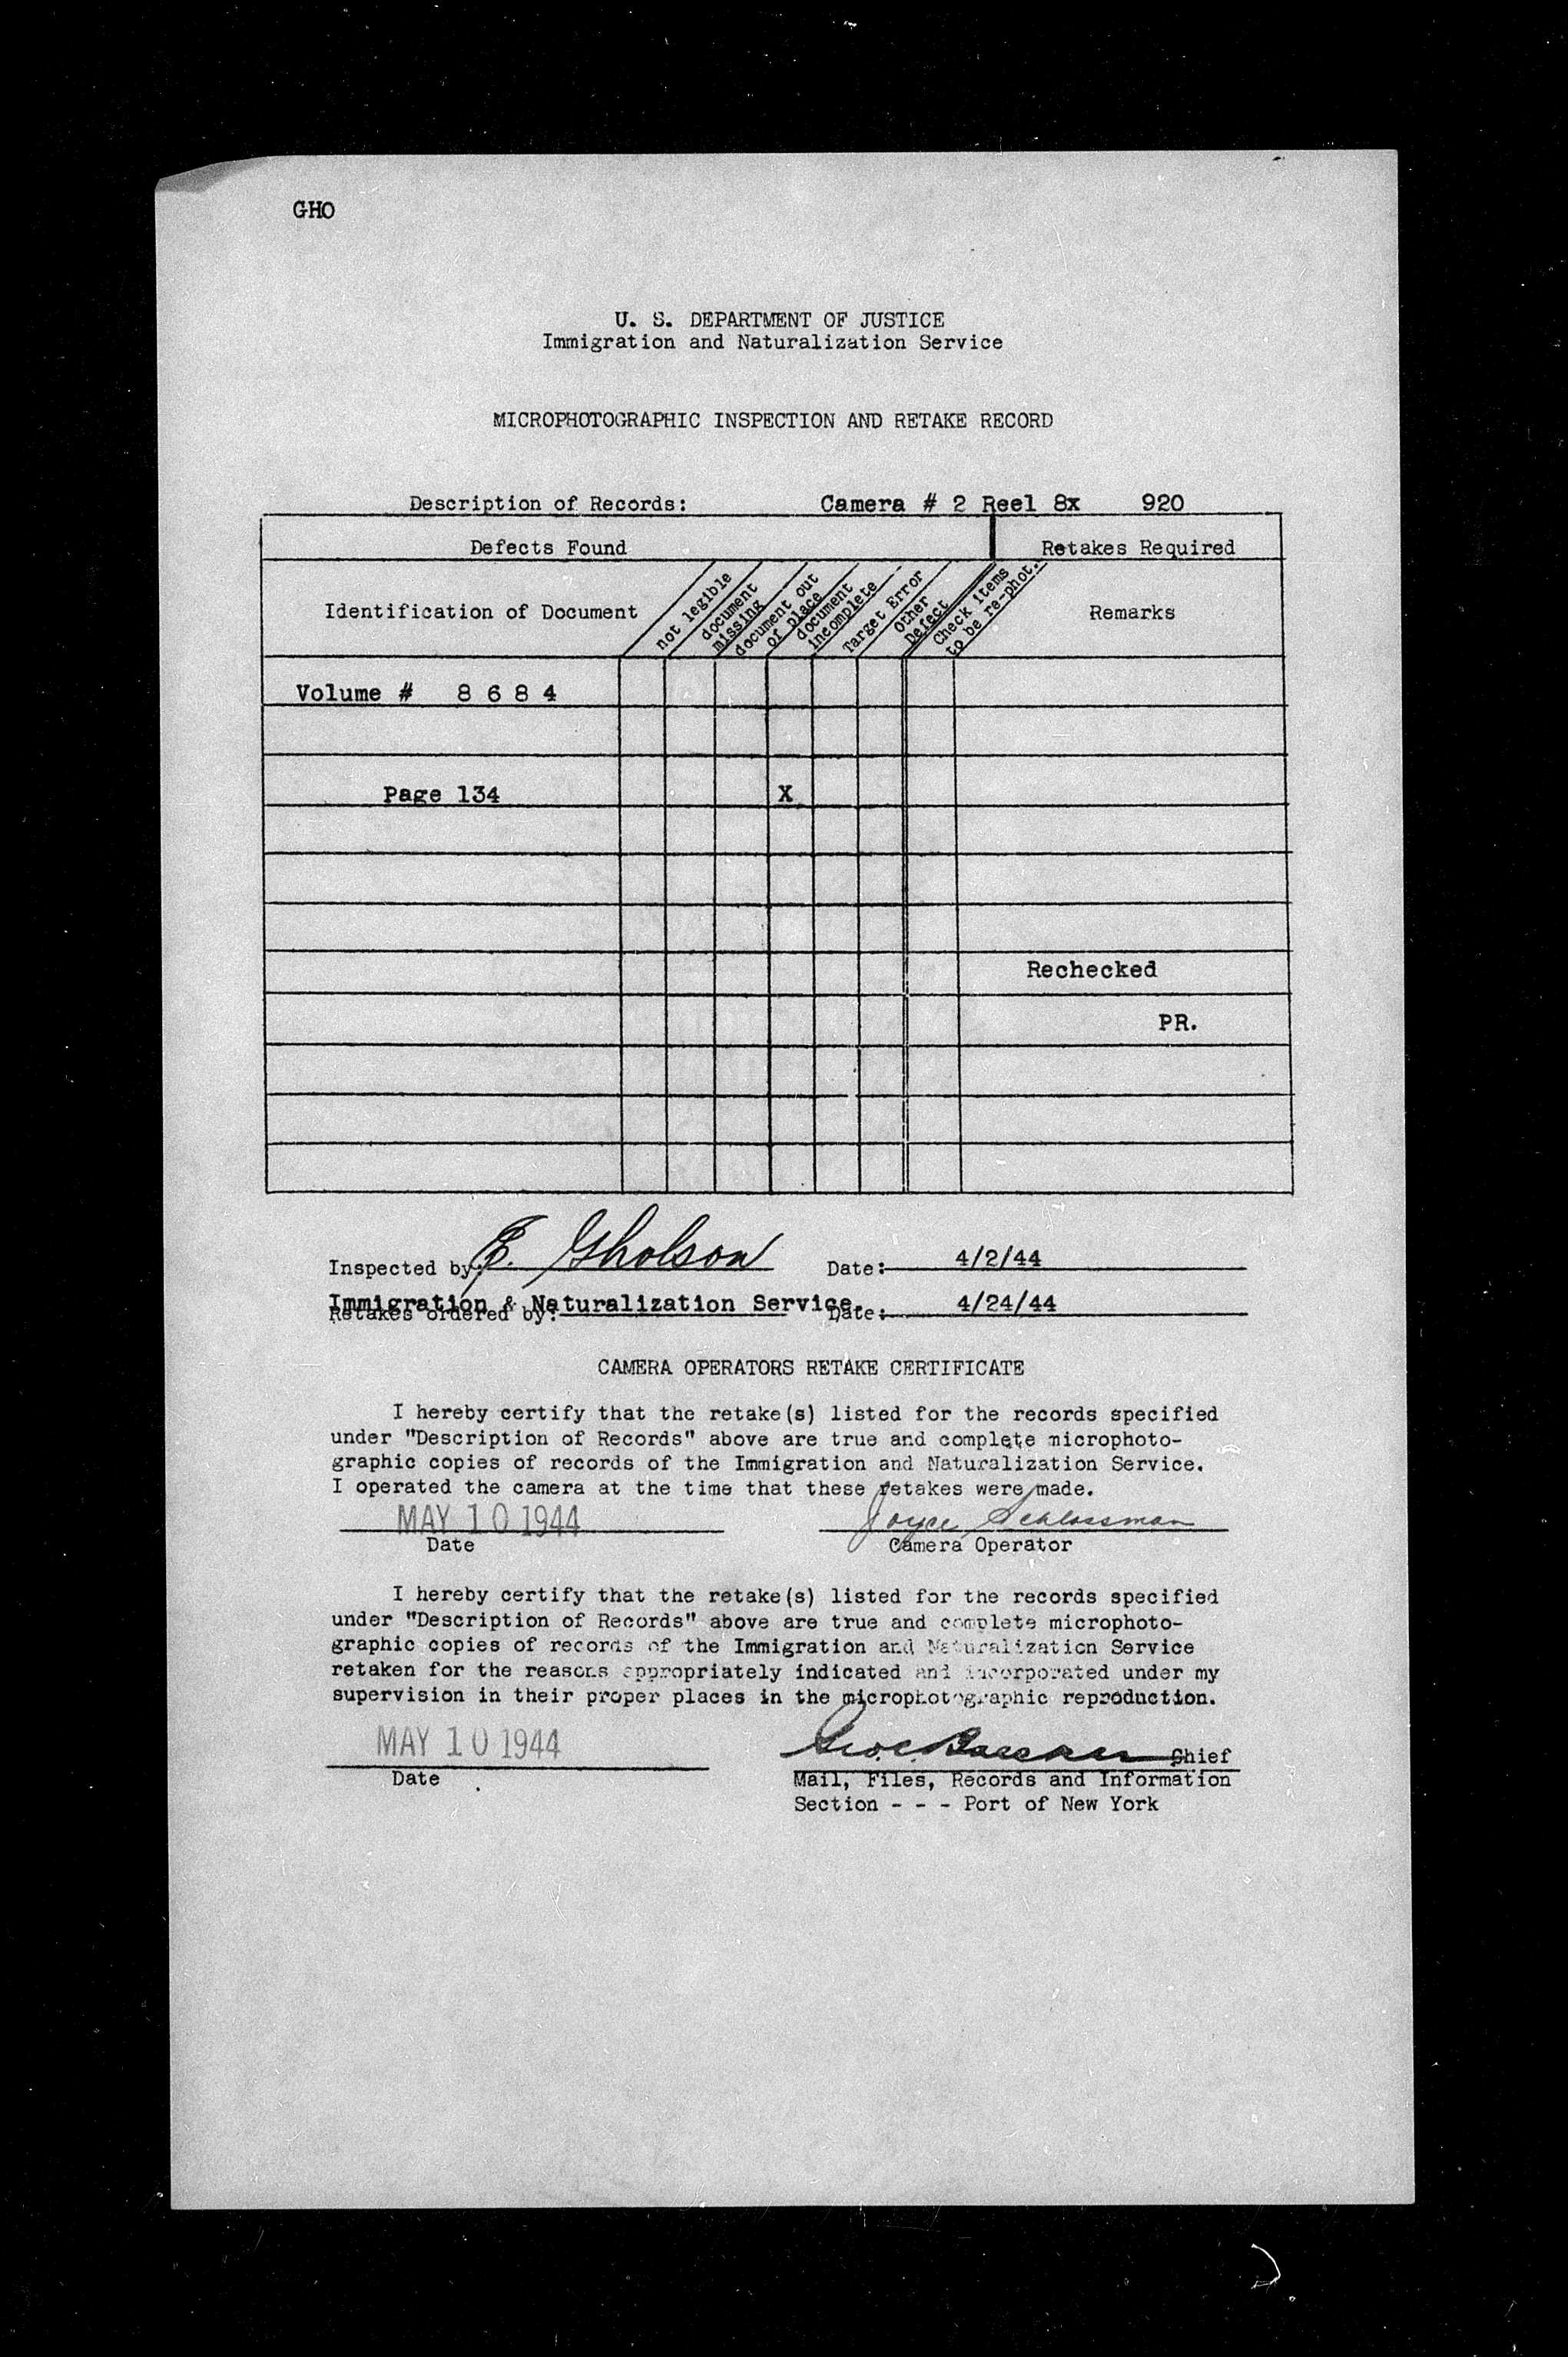 GHO
U. S. DEPARTMENT OF JUSTICE
Immigration and Naturalization Service
MICROPHOTOGRAPHIC INSPECTION AND RETAKE RECORD
Description of Records: Camera # 2 Reel 8x 920
Defects Found Retakes Required
Identification of Document
not legible
document
missing
document out
of place
document
incomplete
Target Error
Other
Defect
Check items
to be re-phot.
Remarks
Volume # 8 6 8 4
Page 134 X
Rechecked
PR.
Inspected by: E. Gholson Date: 4/2/44
Immigration & Naturalization Service. 4/24/44
Retakes ordered by: Date:
CAMERA OPERATORS RETAKE CERTIFICATE
I hereby certify that the retake(s) listed for the records specified
under "Description of Records" above are true and complete microphoto-
graphic copies of records of the Immigration and Naturalization Service.
I operated the camera at the time that these retakes were made.
MAY 10 1944 Joyce Schlossman
Date Camera Operator
I hereby certify that the retake(s) listed for the records specified
under "Description of Records" above are true and complete microphoto-
graphic copies of records of the Immigration and Naturalization Service
retaken for the reasons appropriately indicated and incorporated under my
supervision in their proper places in the microphotographic reproduction.
MAY 10 1944 Chief
Date Mail, Files, Records and Information
Section - - - Port of New York